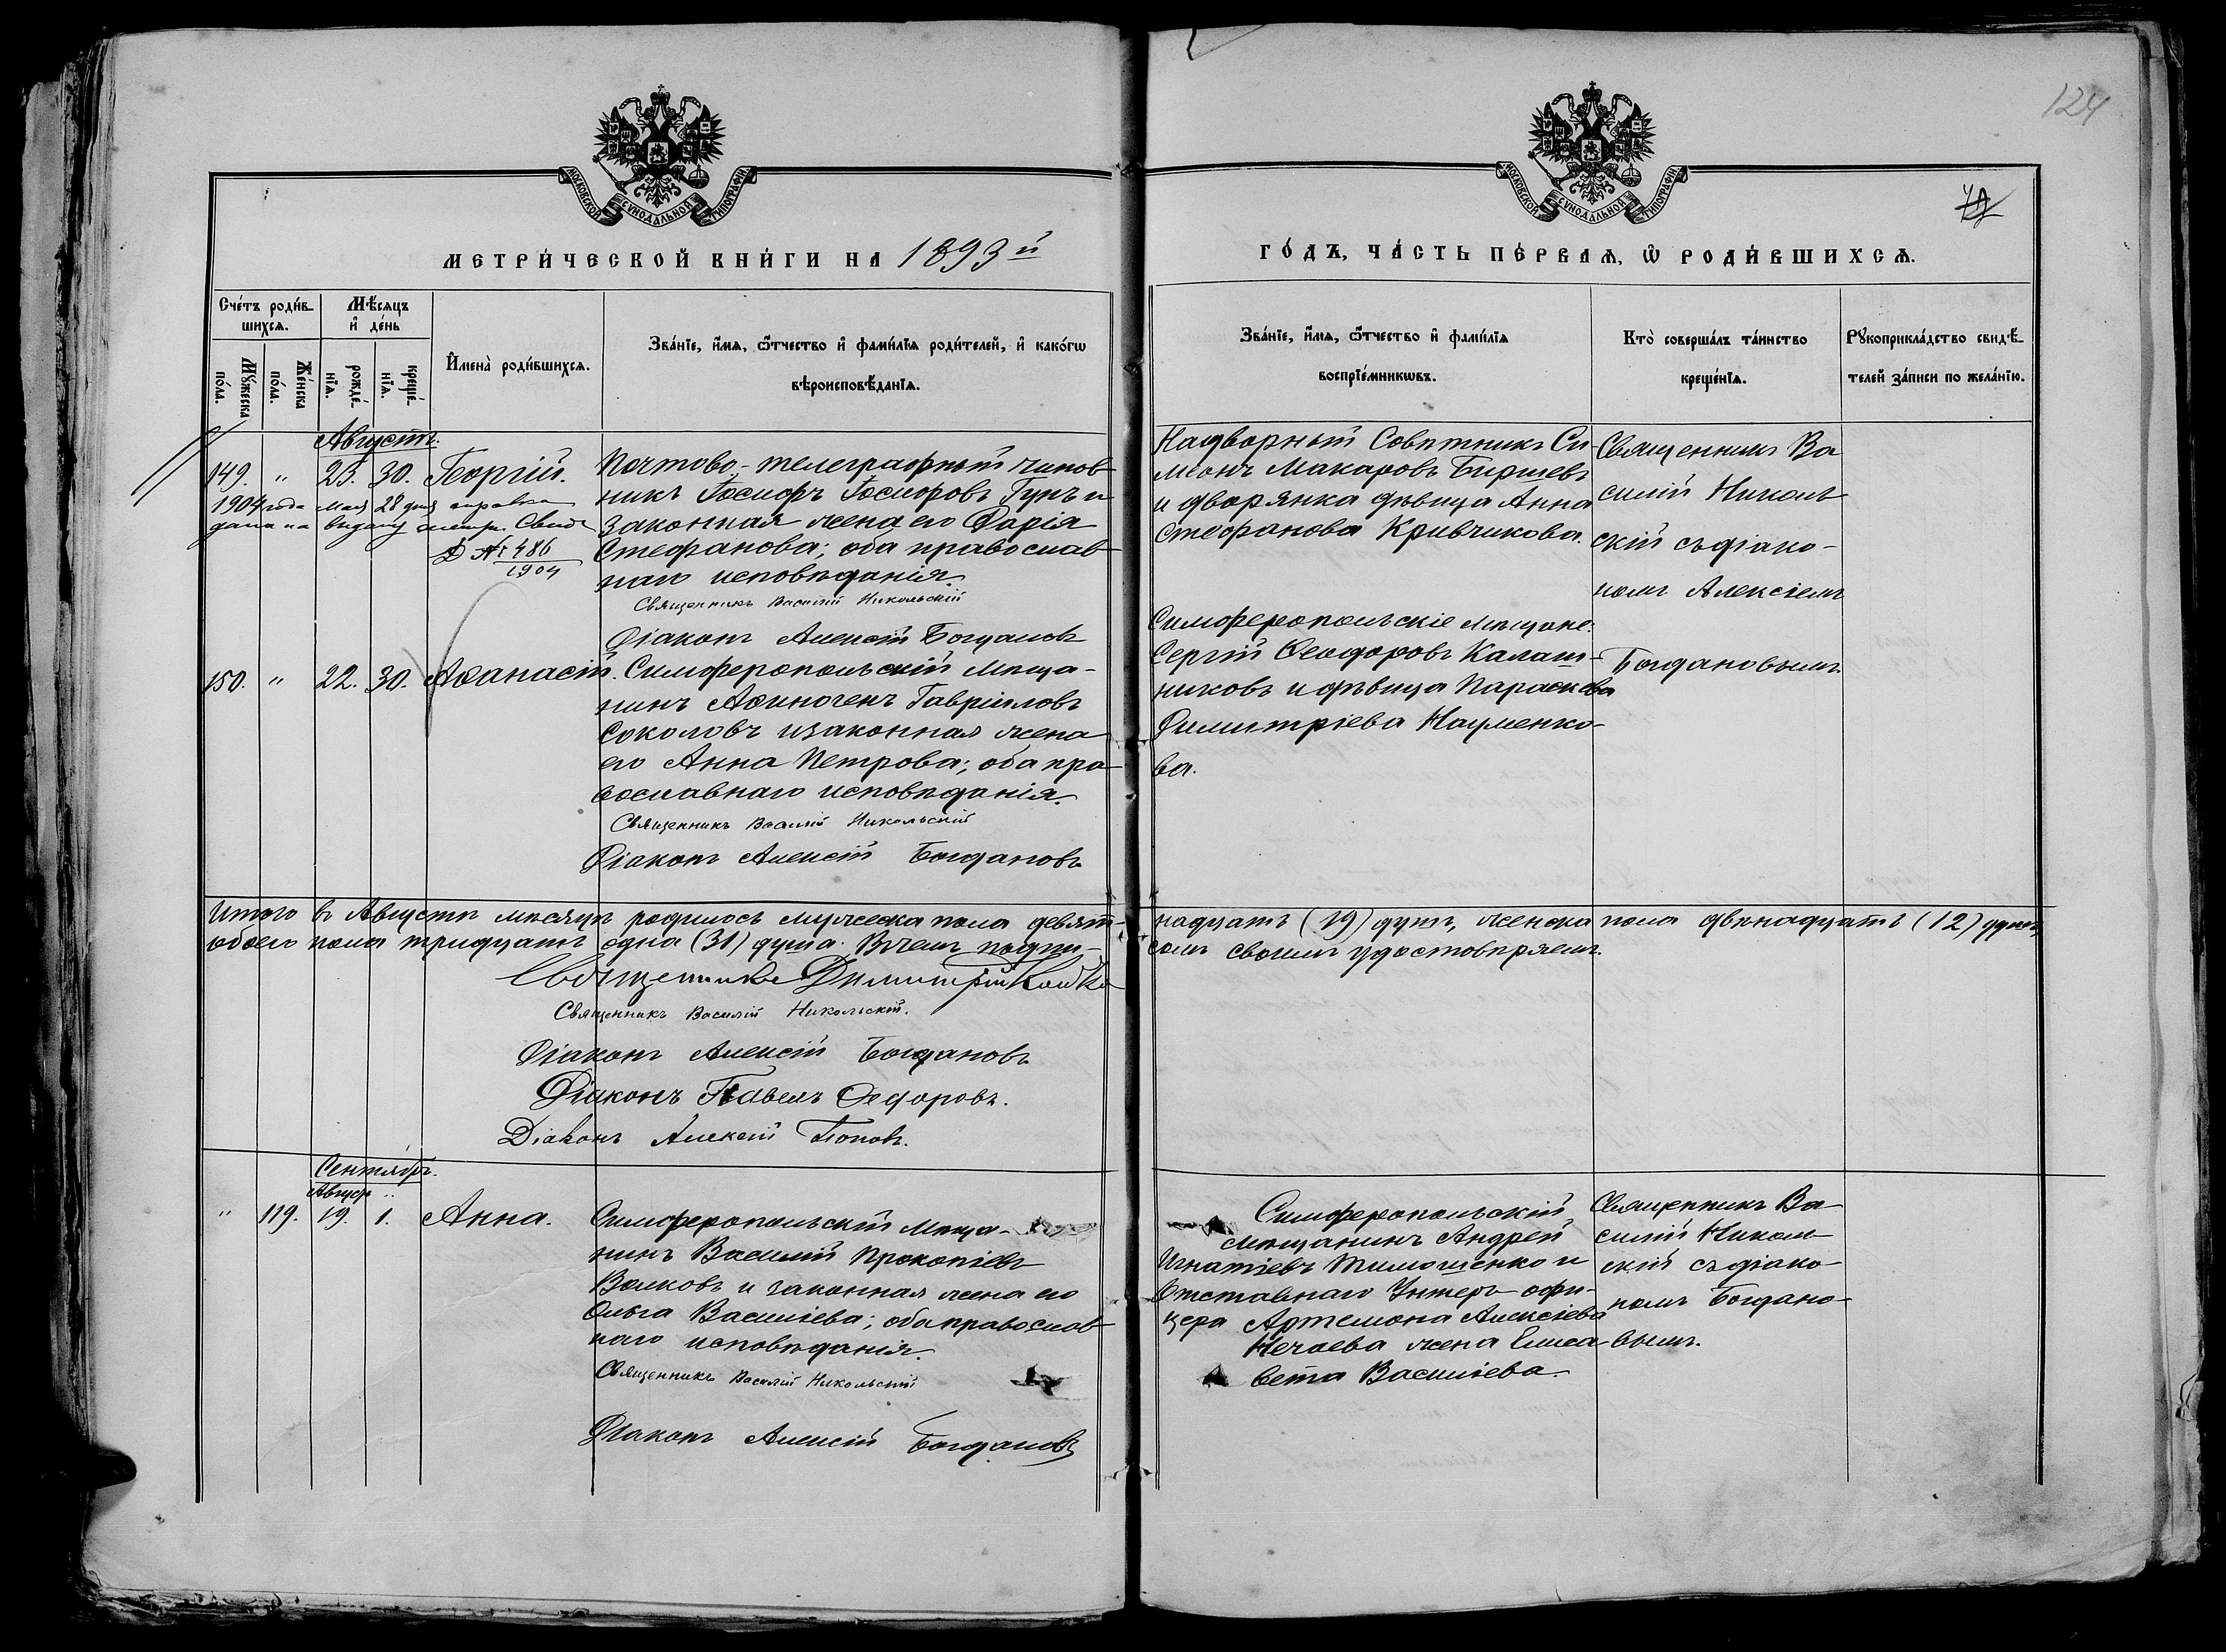 124
МОСКОВСКОЙ СѴНОДАЛЬНОЙ ТИПОГРАФІИ
МОСКОВСКОЙ СѴНОДАЛЬНОЙ ТИПОГРАФІИ
МЕТРИ́ЧЕСКОЙ КНИ́ГИ НА 1893й
ГО́ДЪ, ЧА́СТЬ ПЕ́РВАѦ, Ѡ҆ РОДИ́ВШИХСѦ.
Сче́тъ роди́в-
шихсѧ.
Мѣ́сѧцъ
и҆ де́нь
Мꙋ́жеска
по́ла.
Же́нска
по́ла.
рожде́-
нїѧ.
креще́-
нїѧ.
И҆мена̀ роди́вшихсѧ.
Зва́нїе, и҆́мѧ, ѻ҆́тчество и҆ фами́лїѧ роди́телей, и҆ како́гѡ
вѣроисповѣ́данїѧ.
Зва́нїе, и҆́мѧ, ѻ҆́тчество и҆ фами́лїѧ
воспрїе́мникѡвъ.
Кто̀ соверша́лъ та́инство
креще́нїѧ.
Рꙋкоприкла́дство свидѣ́-
телей за́писи по жела́нїю.
Августъ.
149. " 23. 30. Георгій.
1904 года мая 28 дня справка
дана на выдачу метри. Свид.
№ 486
1904
Почтово-телеграфный чинов-
никъ Іосифъ Іосифовъ Гунъ и
законная жена его Дарія
Стефанова; оба православ-
наго исповѣданія.
Священникъ Василій Никольскій
Діаконъ Алексій Богдановъ
Надворный Совѣтникъ Си-
меонъ Макаровъ
и дворянка дѣвица Анна
Стефанова Кривчикова.
Священникъ Ва
силій Николь
скій съ діако-
номъ Алексіемъ
Богдановымъ.
150. " 22. 30. Аѳанасій.
Симферопольскій мѣща-
нинъ Аѳиногенъ Гавріиловъ
Соколовъ и законная жена
его Анна Петрова; оба пра-
вославнаго исповѣданія.
Священникъ Василій Никольскій
Діаконъ Алексій Богдановъ
Симферопольскіе мѣщане:
Сергій Ѳеодоровъ Калаш-
никовъ и дѣвица Параскева
Димитріева Науменко-
ва.
Итого въ Августѣ мѣсяцѣ родилось мужеска пола девят-
надцать (19) душъ, женска пола двѣнадцать (12) душъ,
обоего пола тридцать одна (31) душа. Въ чемъ подпи-
сомъ своимъ удостовѣряемъ.
Священникъ Димитрій Койко
Священникъ Василій Никольскій.
Діаконъ Алексій Богдановъ
Діаконъ Павелъ Ѳедоровъ.
Діаконъ Алексій Поповъ.
Сентябрь.
Август "
" 119. 19. 1. Анна.
Симферопольскій мѣща-
нинъ Василій Прокопіевъ
Волковъ и законная жена его
Ольга Василіева; оба православ-
наго исповѣданія.
Священникъ Василій Никольскій
Діаконъ Алексій Богдановъ
Симферопольскій
мѣщанинъ Андрей
Игнатіевъ Тимошенко и
Отставнаго Унтеръ-офи-
цера Артемона Алексіева
Нечаева жена Елиса-
вета Василіева.
Священникъ Ва-
силій Николь
скій съ діако-
номъ Богдано-
вымъ.